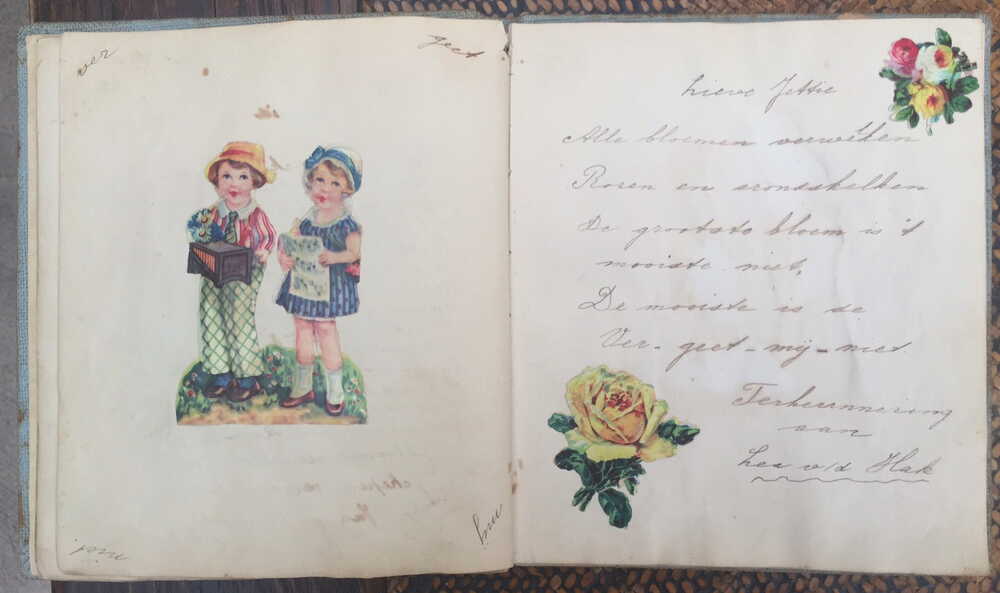 ver
geet
mij
niet
Lieve Jettie
Alle bloemen verwelken
Rozen en
De grootste bloem is 't
mooiste niet,
De mooiste is de
Ver- geet - mij - niet
Ter herinnering
aan
v/d Hak